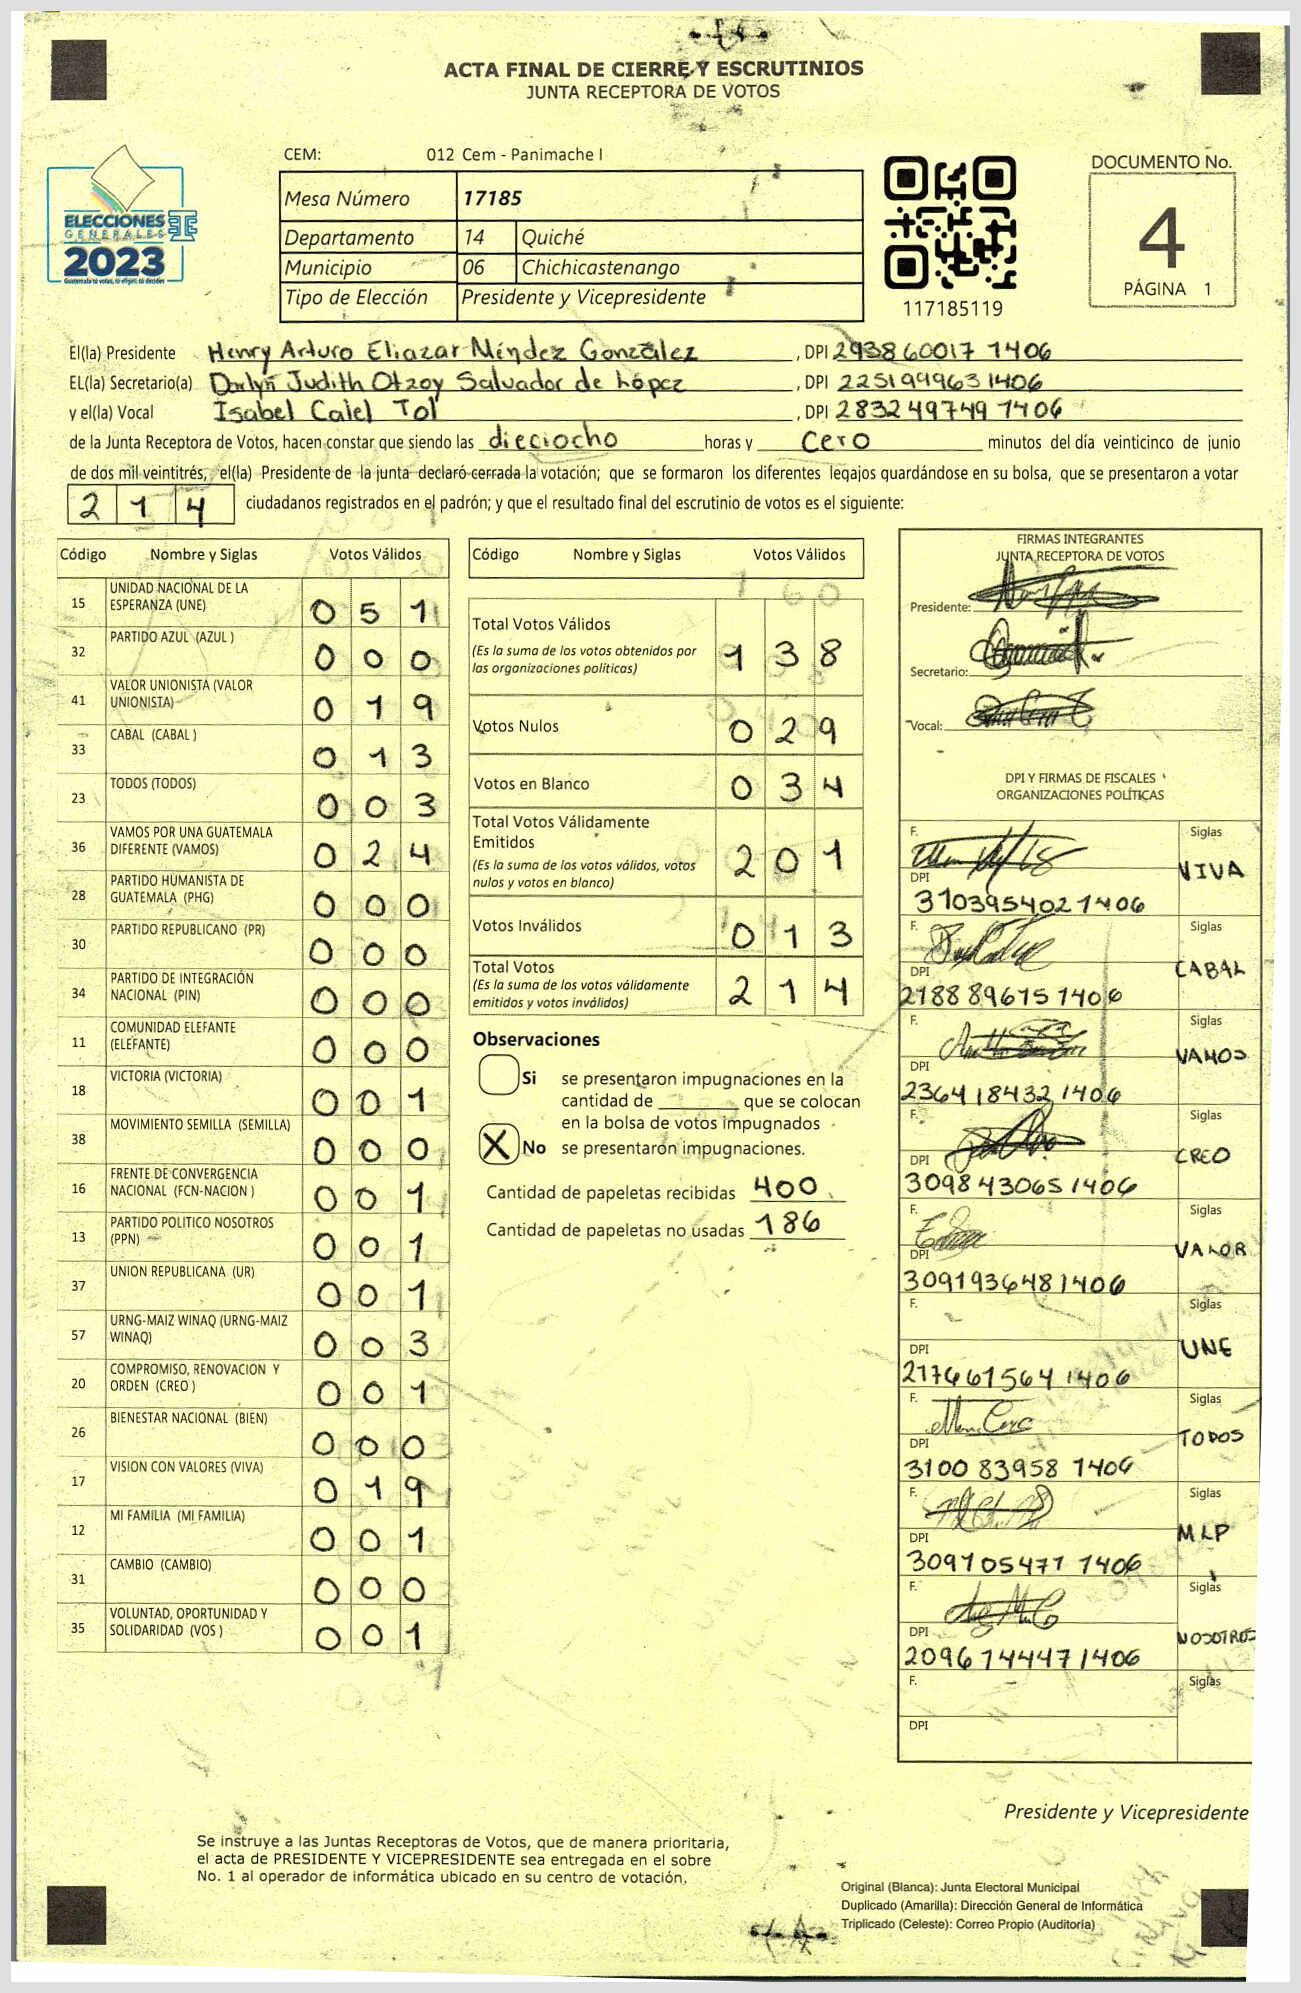 ACTA FINAL DE CIERRE Y ESCRUTINIOS
JUNTA RECEPTORA DE VOTOS
CEM: 012 Cem - Panimache I
ELECCIONES
GENERALES
2023
Guatemala tú votas, tú eliges, tú decides
Mesa Número 17185
Departamento 14 Quiché
Municipio 06 Chichicastenango
Tipo de Elección Presidente y Vicepresidente
117185119
DOCUMENTO No.
4
PÁGINA 1
El(la) Presidente Henry Arturo Eliazar Méndez González, DPI 293860017 1406
EL(la) Secretario(a) Darlyn Judith Otzoy Salvador de López, DPI 225199963 1406
y el(la) Vocal Isabel Calel Tol, DPI 283249749 1406
de la Junta Receptora de Votos, hacen constar que siendo las dieciocho horas y cero minutos del día veinticinco de junio
de dos mil veintitrés, el(la) Presidente de la junta declaró cerrada la votación; que se formaron los diferentes legajos guardándose en su bolsa, que se presentaron a votar
214 ciudadanos registrados en el padrón; y que el resultado final del escrutinio de votos es el siguiente:
Código Nombre y Siglas Votos Válidos
15 UNIDAD NACIONAL DE LA ESPERANZA (UNE) 051
32 PARTIDO AZUL (AZUL ) 000
41 VALOR UNIONISTA (VALOR UNIONISTA) 019
33 CABAL (CABAL ) 013
23 TODOS (TODOS) 003
36 VAMOS POR UNA GUATEMALA DIFERENTE (VAMOS) 024
28 PARTIDO HUMANISTA DE GUATEMALA (PHG) 000
30 PARTIDO REPUBLICANO (PR) 000
34 PARTIDO DE INTEGRACIÓN NACIONAL (PIN) 000
11 COMUNIDAD ELEFANTE (ELEFANTE) 000
18 VICTORIA (VICTORIA) 001
38 MOVIMIENTO SEMILLA (SEMILLA) 000
16 FRENTE DE CONVERGENCIA NACIONAL (FCN-NACION ) 001
13 PARTIDO POLITICO NOSOTROS (PPN) 001
37 UNION REPUBLICANA (UR) 001
57 URNG-MAIZ WINAQ (URNG-MAIZ WINAQ) 003
20 COMPROMISO, RENOVACION Y ORDEN (CREO ) 001
26 BIENESTAR NACIONAL (BIEN) 000
17 VISION CON VALORES (VIVA) 019
12 MI FAMILIA (MI FAMILIA) 001
31 CAMBIO (CAMBIO) 000
35 VOLUNTAD, OPORTUNIDAD Y SOLIDARIDAD (VOS ) 001
Código Nombre y Siglas Votos Válidos
Total Votos Válidos 138
(Es la suma de los votos obtenidos por
las organizaciones políticas)
Votos Nulos 029
Votos en Blanco 034
Total Votos Válidamente
Emitidos 201
(Es la suma de los votos válidos, votos
nulos y votos en blanco)
Votos Inválidos 013
Total Votos 214
(Es la suma de los votos válidamente
emitidos y votos inválidos)
Observaciones
Si se presentaron impugnaciones en la
cantidad de ______ que se colocan
en la bolsa de votos impugnados
X No se presentaron impugnaciones.
Cantidad de papeletas recibidas 400
Cantidad de papeletas no usadas 186
FIRMAS INTEGRANTES
JUNTA RECEPTORA DE VOTOS
Presidente:
Secretario:
Vocal:
DPI Y FIRMAS DE FISCALES
ORGANIZACIONES POLÍTICAS
F. Siglas
VIVA
DPI
310395402 1406
F. Siglas
CABAL
DPI
2188896151406
F. Siglas
VAMOS
DPI
236418432 1406
F. Siglas
CREO
DPI
3098430651406
F. Siglas
VALOR
DPI
3091936481406
F. Siglas
UNE
DPI
217661564 1406
F. Siglas
TODOS
DPI
3100 83958 1406
F. Siglas
MLP
DPI
309105471 1406
F. Siglas
NOSOTROS
DPI
2096744471406
F. Siglas
DPI
Presidente y Vicepresidente
Se instruye a las Juntas Receptoras de Votos, que de manera prioritaria,
el acta de PRESIDENTE Y VICEPRESIDENTE sea entregada en el sobre
No. 1 al operador de informática ubicado en su centro de votación.
Original (Blanca): Junta Electoral Municipal
Duplicado (Amarilla): Dirección General de Informática
Triplicado (Celeste): Correo Propio (Auditoría)